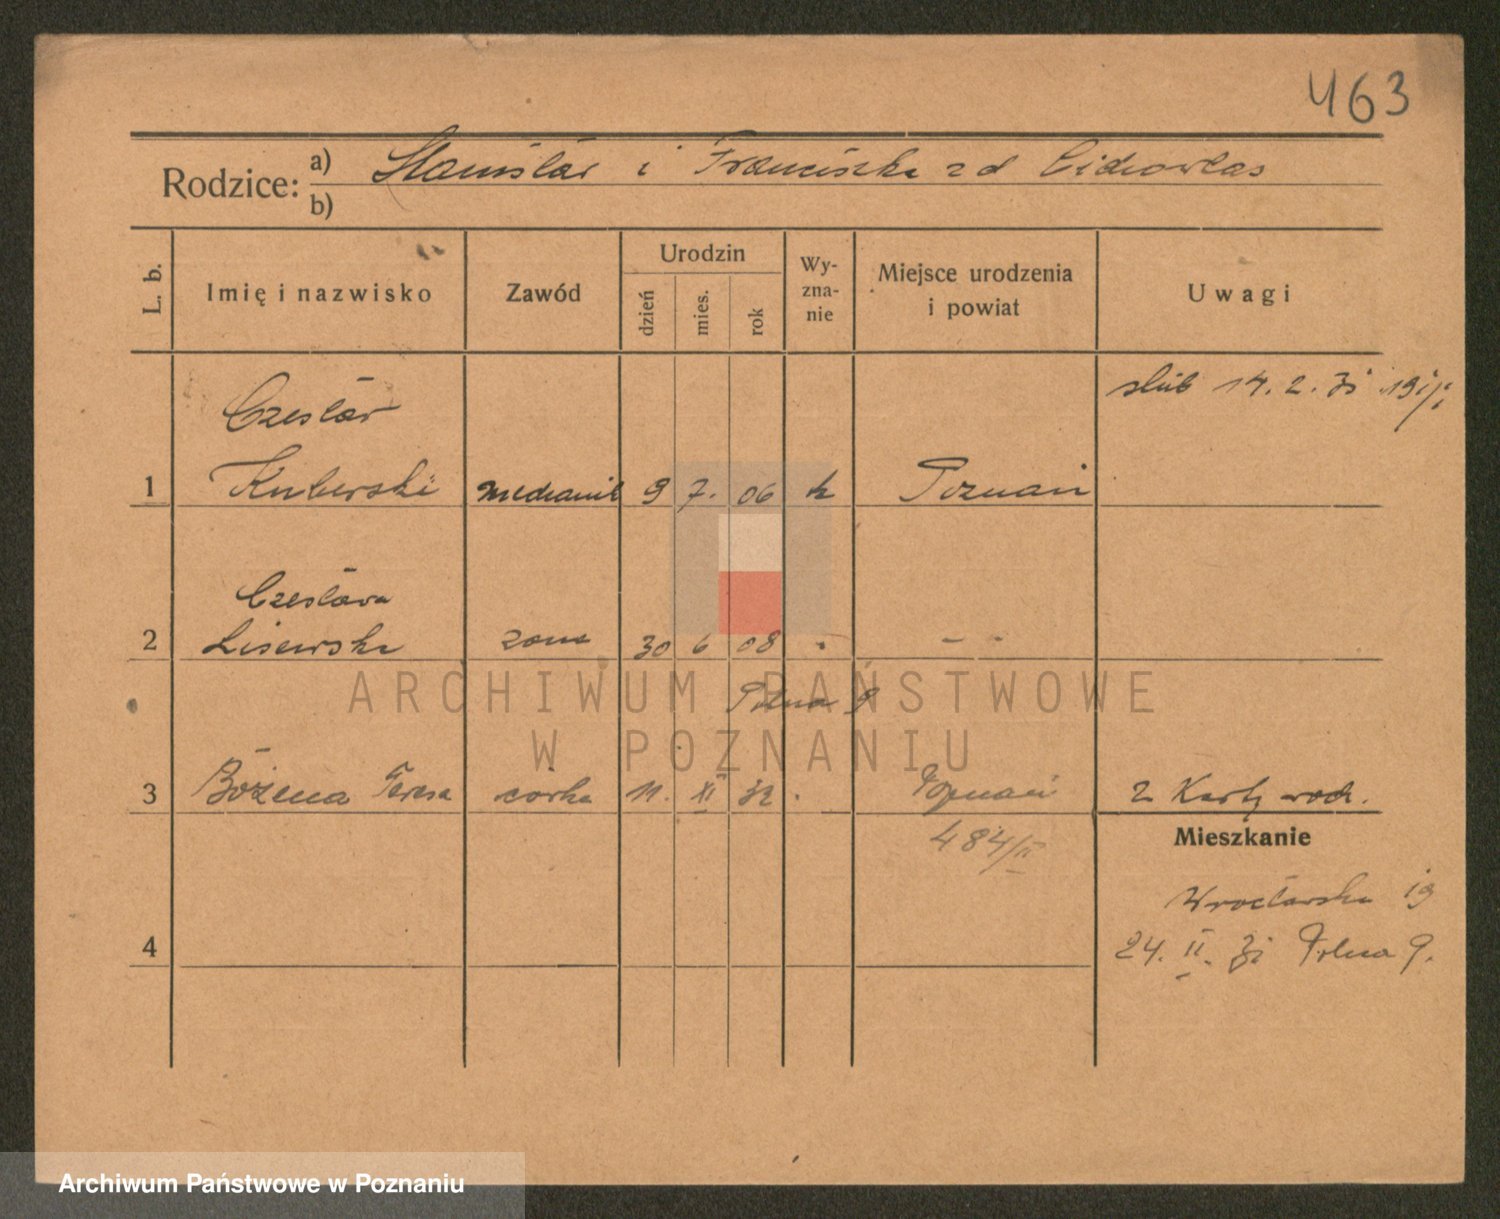 463
Rodzice: a) Stanisław i Franciszka z d
b)
L. b.
Imię i nazwisko
Zawód
Urodzin
dzień
mies.
rok
Wy-
zna-
nie
Miejsce urodzenia
i powiat
Uwagi
ślub 14. 2. 31
Czesław
1 Kuberski mechanik 9 7. 06 k Poznań
Czesława
2 Lisewska żona 30 6 08 - - -
Polna 9
3 Bożena Teresa córka 11. XI 32 Poznań 2 Karty rodz.
484/II
Mieszkanie
Wrocławska 19
4
24. II. 31 Polna 9.
ARCHIWUM PAŃSTWOWE
W POZNANIU
Archiwum Państwowe w Poznaniu